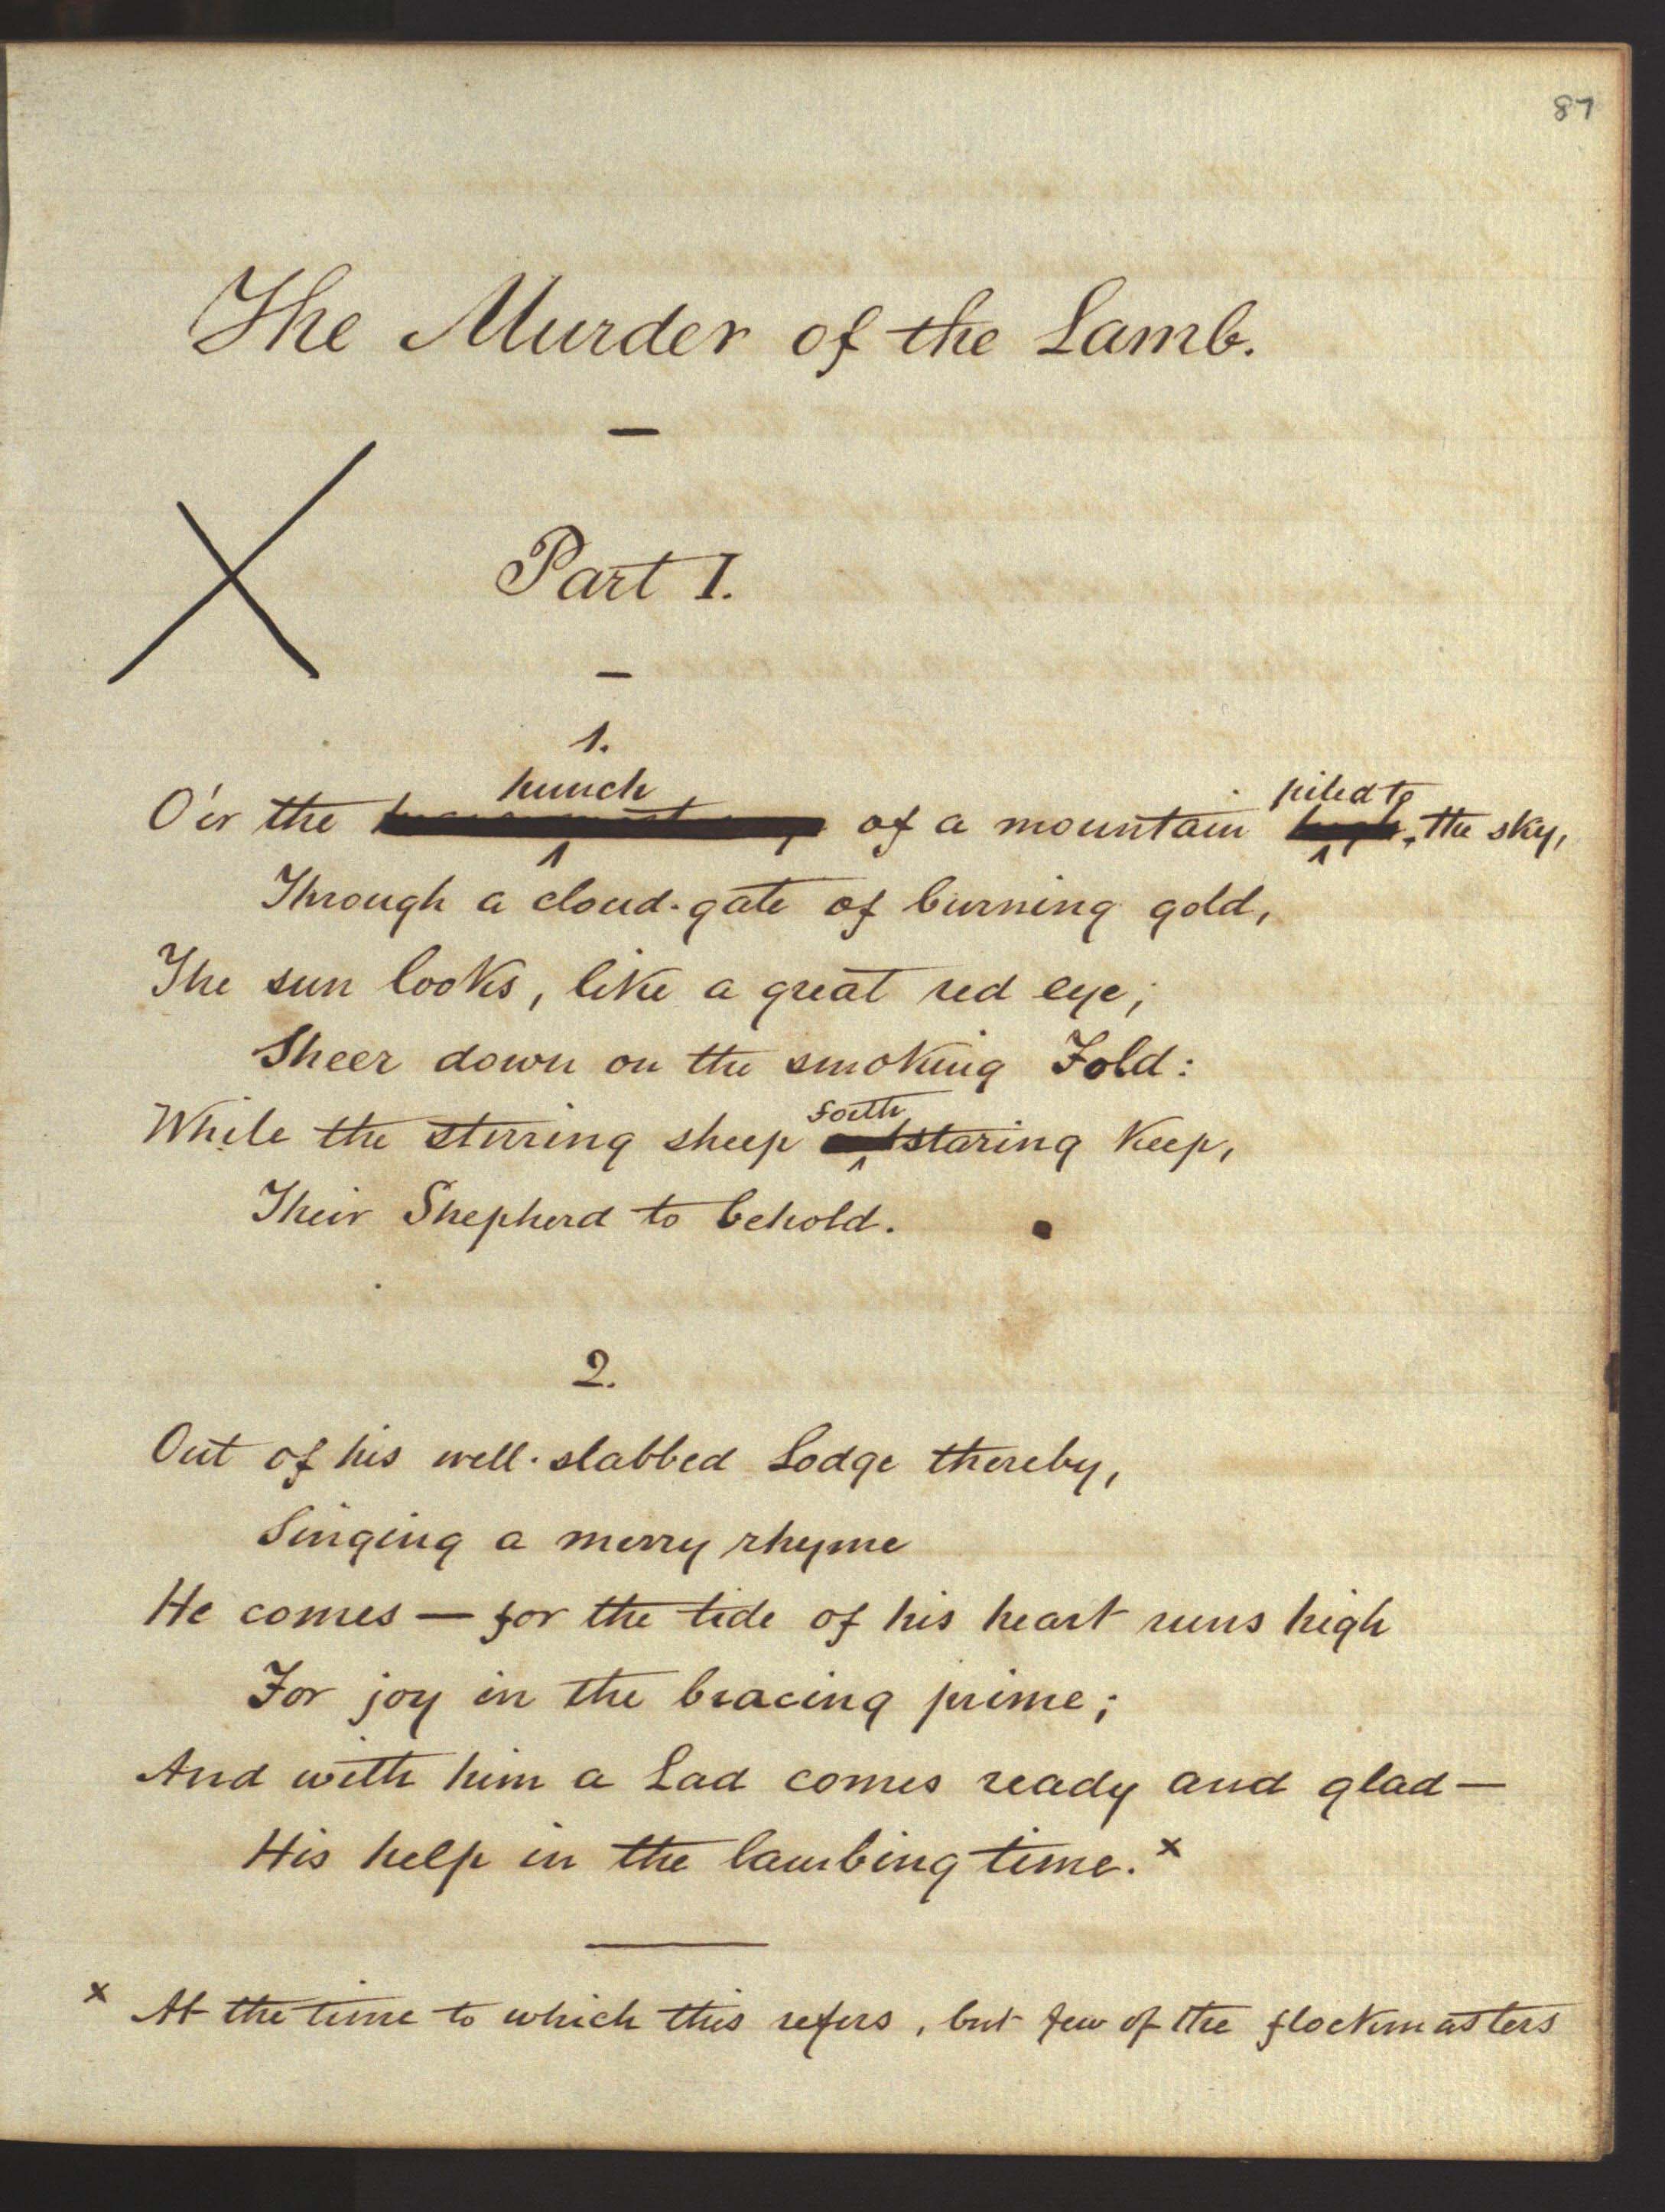 87
The Murder of the Lamb.
Part I.
1.
hunch piled to
O'er the of a mountain the sky,
Through a cloud-gate of burning gold,
The sun looks, like a great red eye;
Sheer down on the smoking Fold:
forth
While the stirring sheep staring keep,
Their Shepherd to behold.
2.
Out of his well-slabbed Lodge thereby,
Singing a merry rhyme
He comes — for the tide of his heart runs high
For joy in the bracing prime;
And with him a Lad comes ready and glad —
His help in the lambing time. x
x At the time to which this refers, but few of the flockmasters